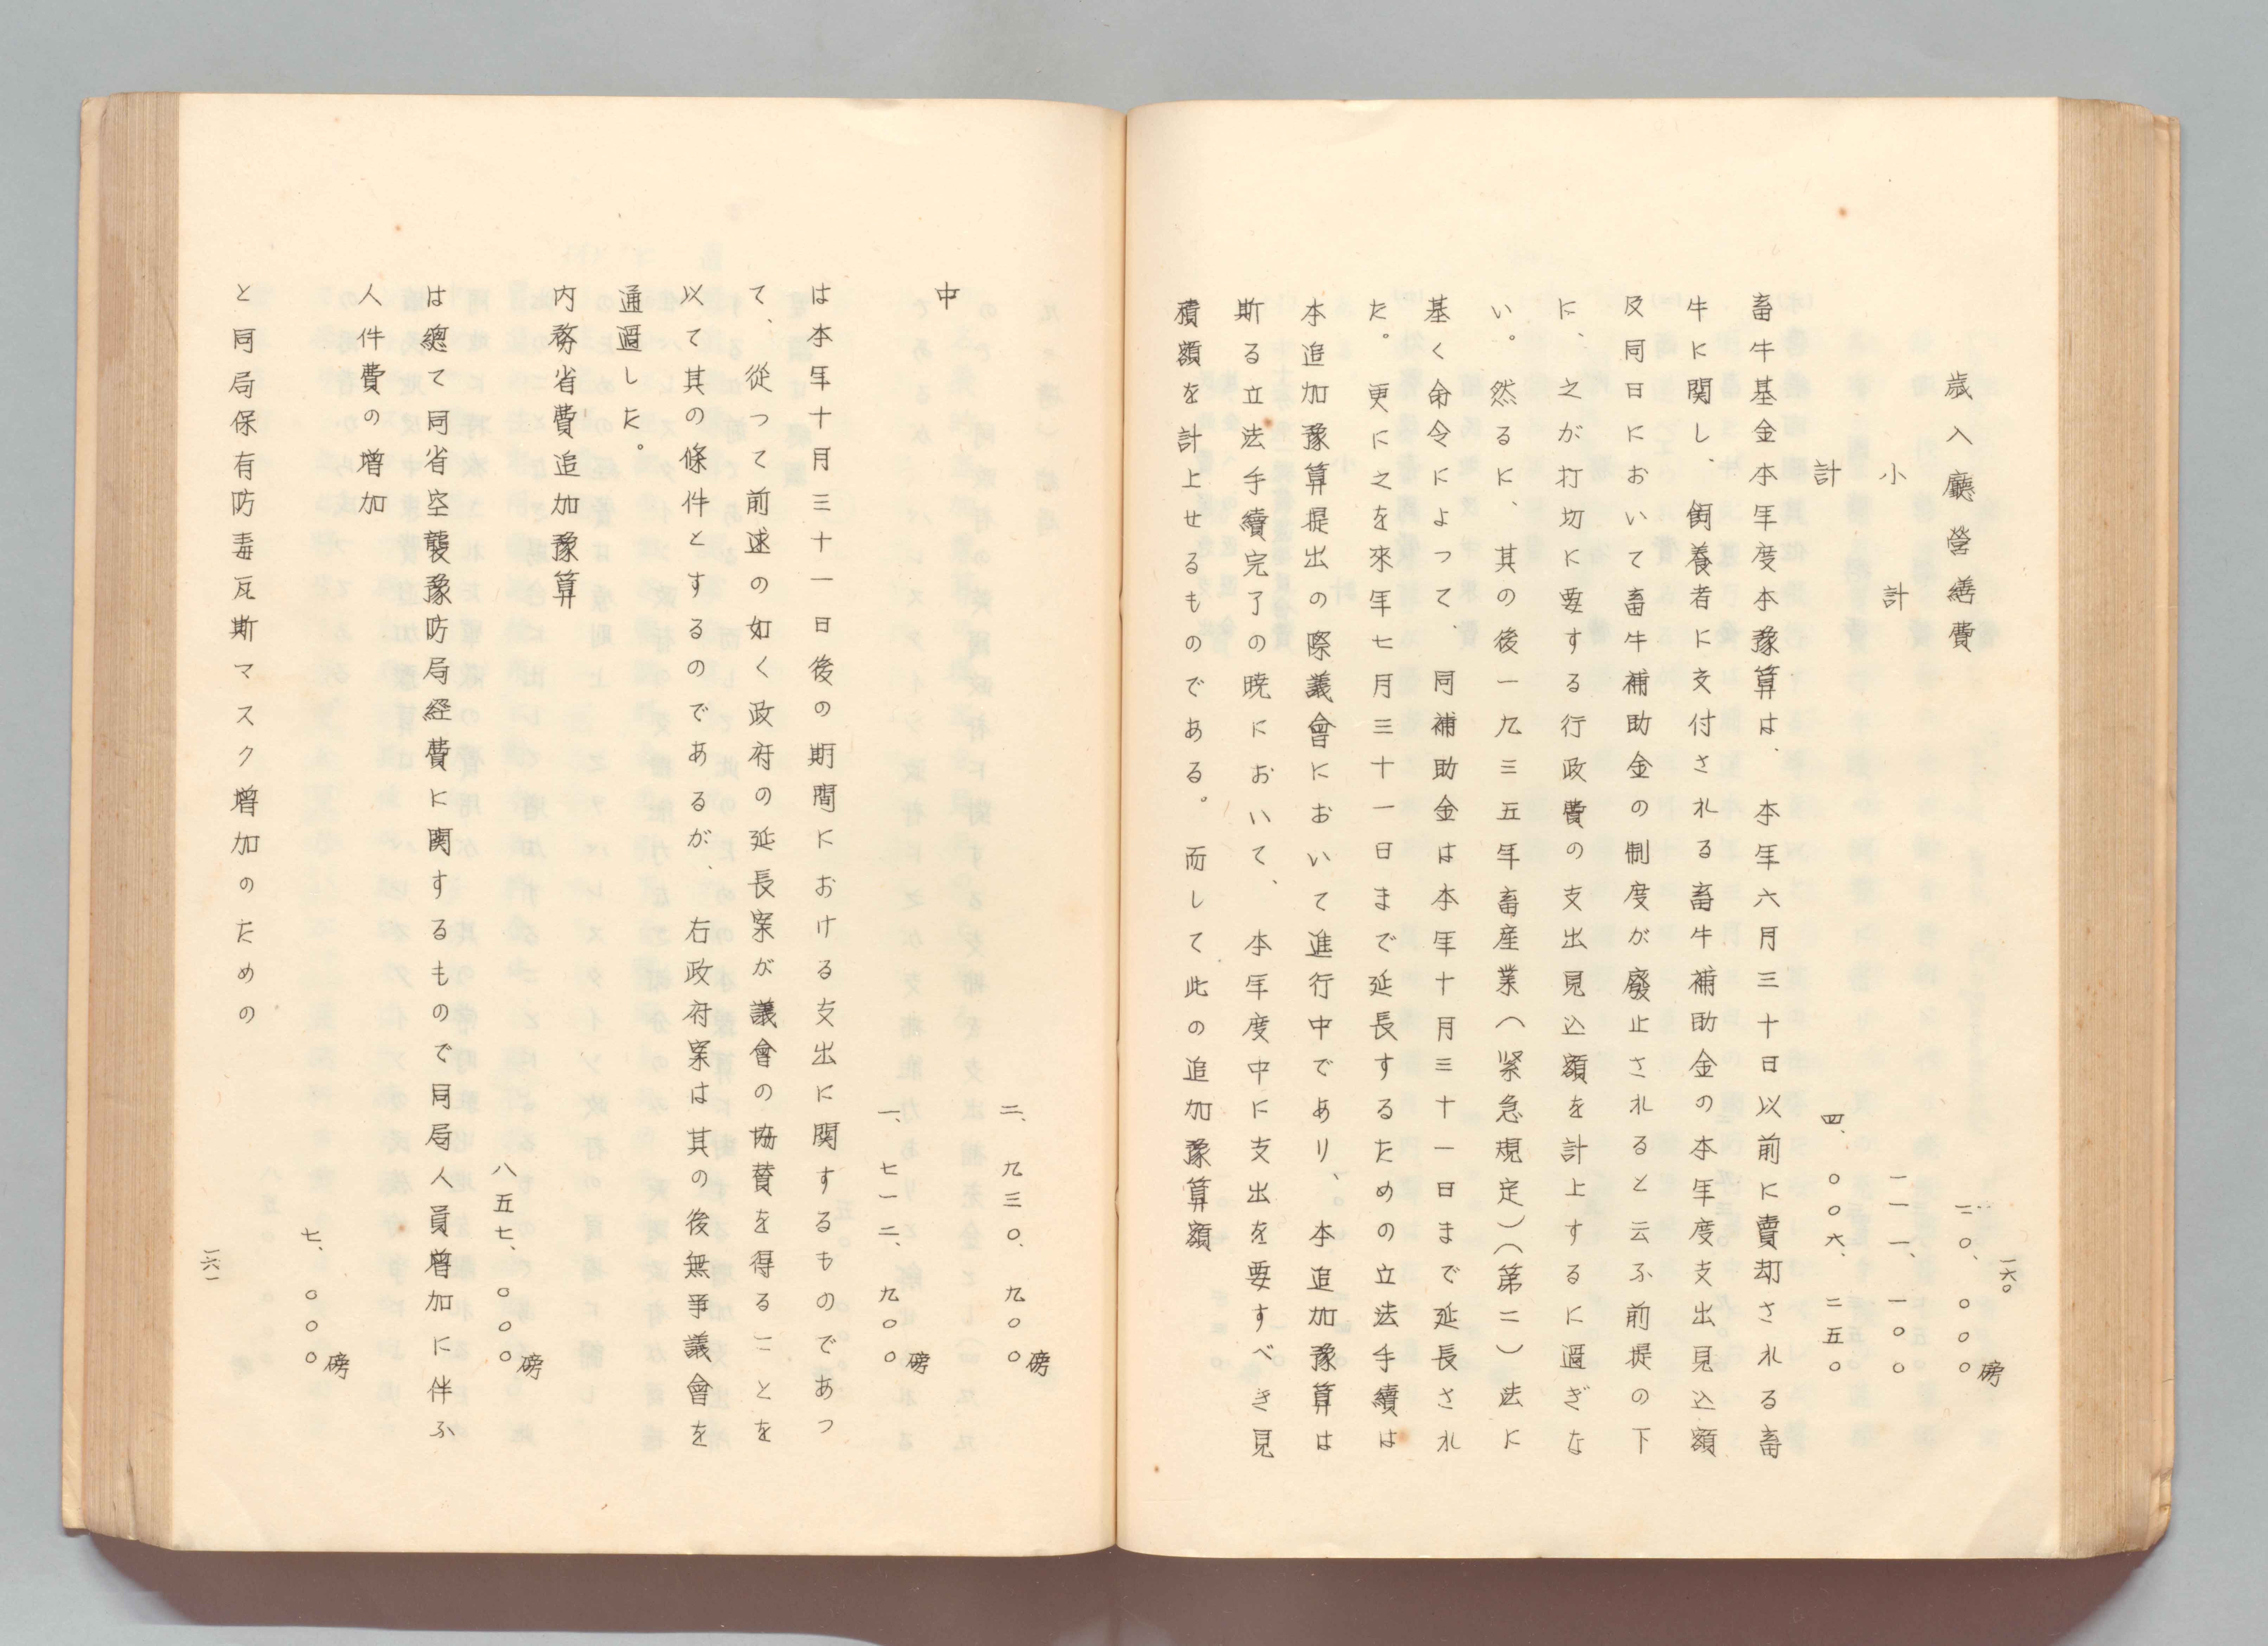 一六〇
歳入廳營繕費 二〇、〇〇〇磅
小計 一一一、一〇〇
計 四、〇〇六、二五〇
畜牛基金本年度本豫算は、本年六月三十日以前に賣却される畜
牛に関し、飼養者に交付される畜牛補助金の本年度支出見込額
及同日において畜牛補助金の制度が廢止されると云ふ前提の下
に、之が打切に要する行政費の支出見込額を計上するに過ぎな
い。然るに、其の後一九三五年畜産業（緊急規定）（第二）法に
基く命令によって、同補助金は本年十月三十一日まで延長され
た。更に之を來年七月三十一日まで延長するための立法手續は
本追加豫算提出の際議會において進行中であり、本追加豫算は
斯る立法手續完了の暁において、本年度中に支出を要すべき見
積額を計上せるものである。而して此の追加豫算額
二、九三〇、九〇〇磅
中
一、七一二、九〇〇磅
は本年十月三十一日後の期間における支出に関するものであっ
て、従って前述の如く政府の延長案が議會の協賛を得ることを
以て其の條件とするのであるが、右政府案は其の後無爭議會を
通過した。
内務省費追加豫算
八五七、〇〇〇磅
は總て同省空襲豫防局経費に関するもので同局人員増加に伴ふ
人件費の増加
七、〇〇〇磅
と同局保有防毒瓦斯マスク増加のための
一六一